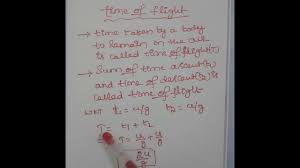 time of flight
→ time taken by a body
to remain in the air
is called time of flight(T)
→ Sum of time ascent(t₁)
and time of descent(t₂) is
called time of flight
WKT t₁ = u/g t₂ = u/g
T = t₁ + t₂
= u/g + u/g
2u/g